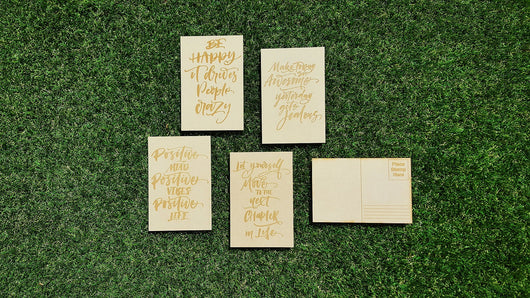 BE
HAPPY
it drives
People
crazy
Make today
Awesome
yesterday
gets
Jealous
Positive
MIND
Positive
VIBES
Positive
LIFE
Let yourself
Move
TO THE
next
Chapter
in Life
Place
Stamp
Here